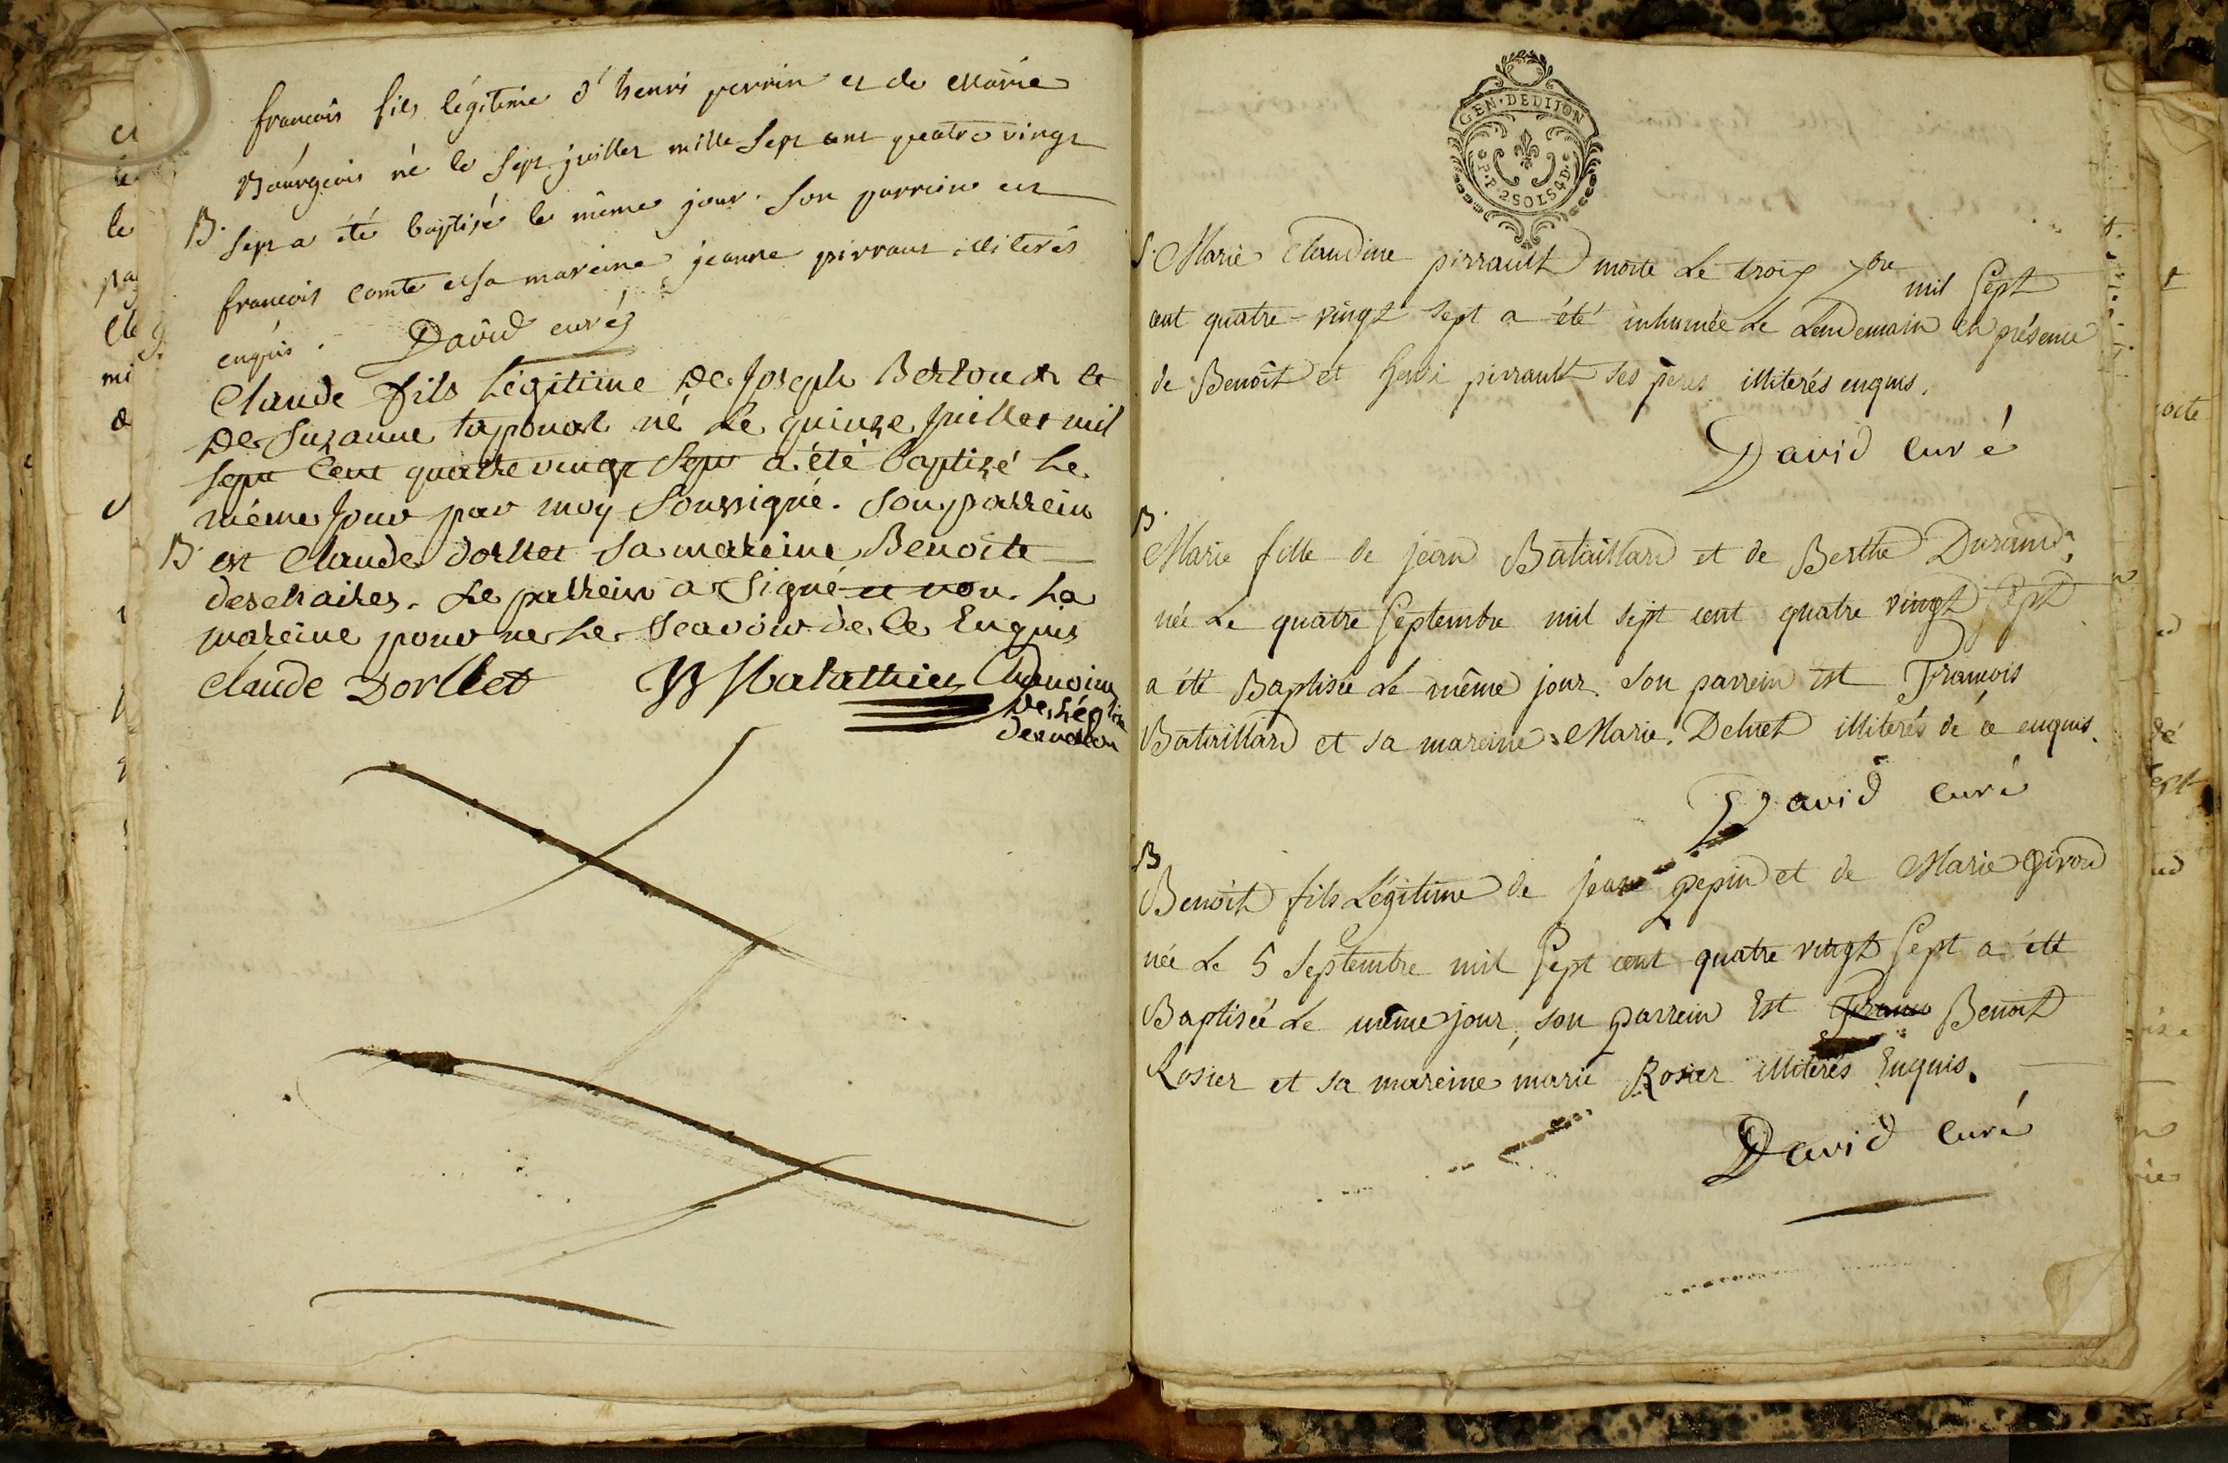 francois fils légitime d'henri perrin et de marie
Bourgeois né le sept juillet mille sept cent quatre vingt
B. sept a été baptisé le même jour. son parrein est
francois comte et sa mareine jeanne pirraut illiterés
enquis. David curé
Claude fils Légitime De Joseph Bertoud et
De Suzanne taponat né Le quinze Juillet mil
sept Cent quatre vingt Sept a été baptizé Le
même Jour par moy Soussigné. Son parrein
B. est Claude dorllet Sa mareine Benoite
deschaizes. Le parrein a Signé et non La
mareine pour ne Le Scavoir de Ce Enquis
Claude Dorllet Chanoine
GEN. DE DIJON
P.P. 2 SOLS 4 D.
S. Marie Claudine pirrault morte Le trois 7bre mil Sept
cent quatre-vingt sept a été inhumée Le Lendemain en présence
de Benoît et henri pirrault ses illiterés enquis.
David Curé
B.
Marie fille de jean Bataillard et de Berthe Durand,
née Le quatre Septembre mil sept cent quatre vingt Sept
a été Baptisée Le même jour. Son parrein est Francois
Bataillard et sa mareine Marie. illiterés de ce enquis.
David Curé
B
Benoît fils Légitime de jean pepin et de Marie Giroud
née Le 5 Septembre mil Sept cent quatre vingt Sept a été
Baptisée Le même jour, son parrein Est Franc Benoit
Rosier et sa mareine marie Rosier illiterés Enquis.
David Curé